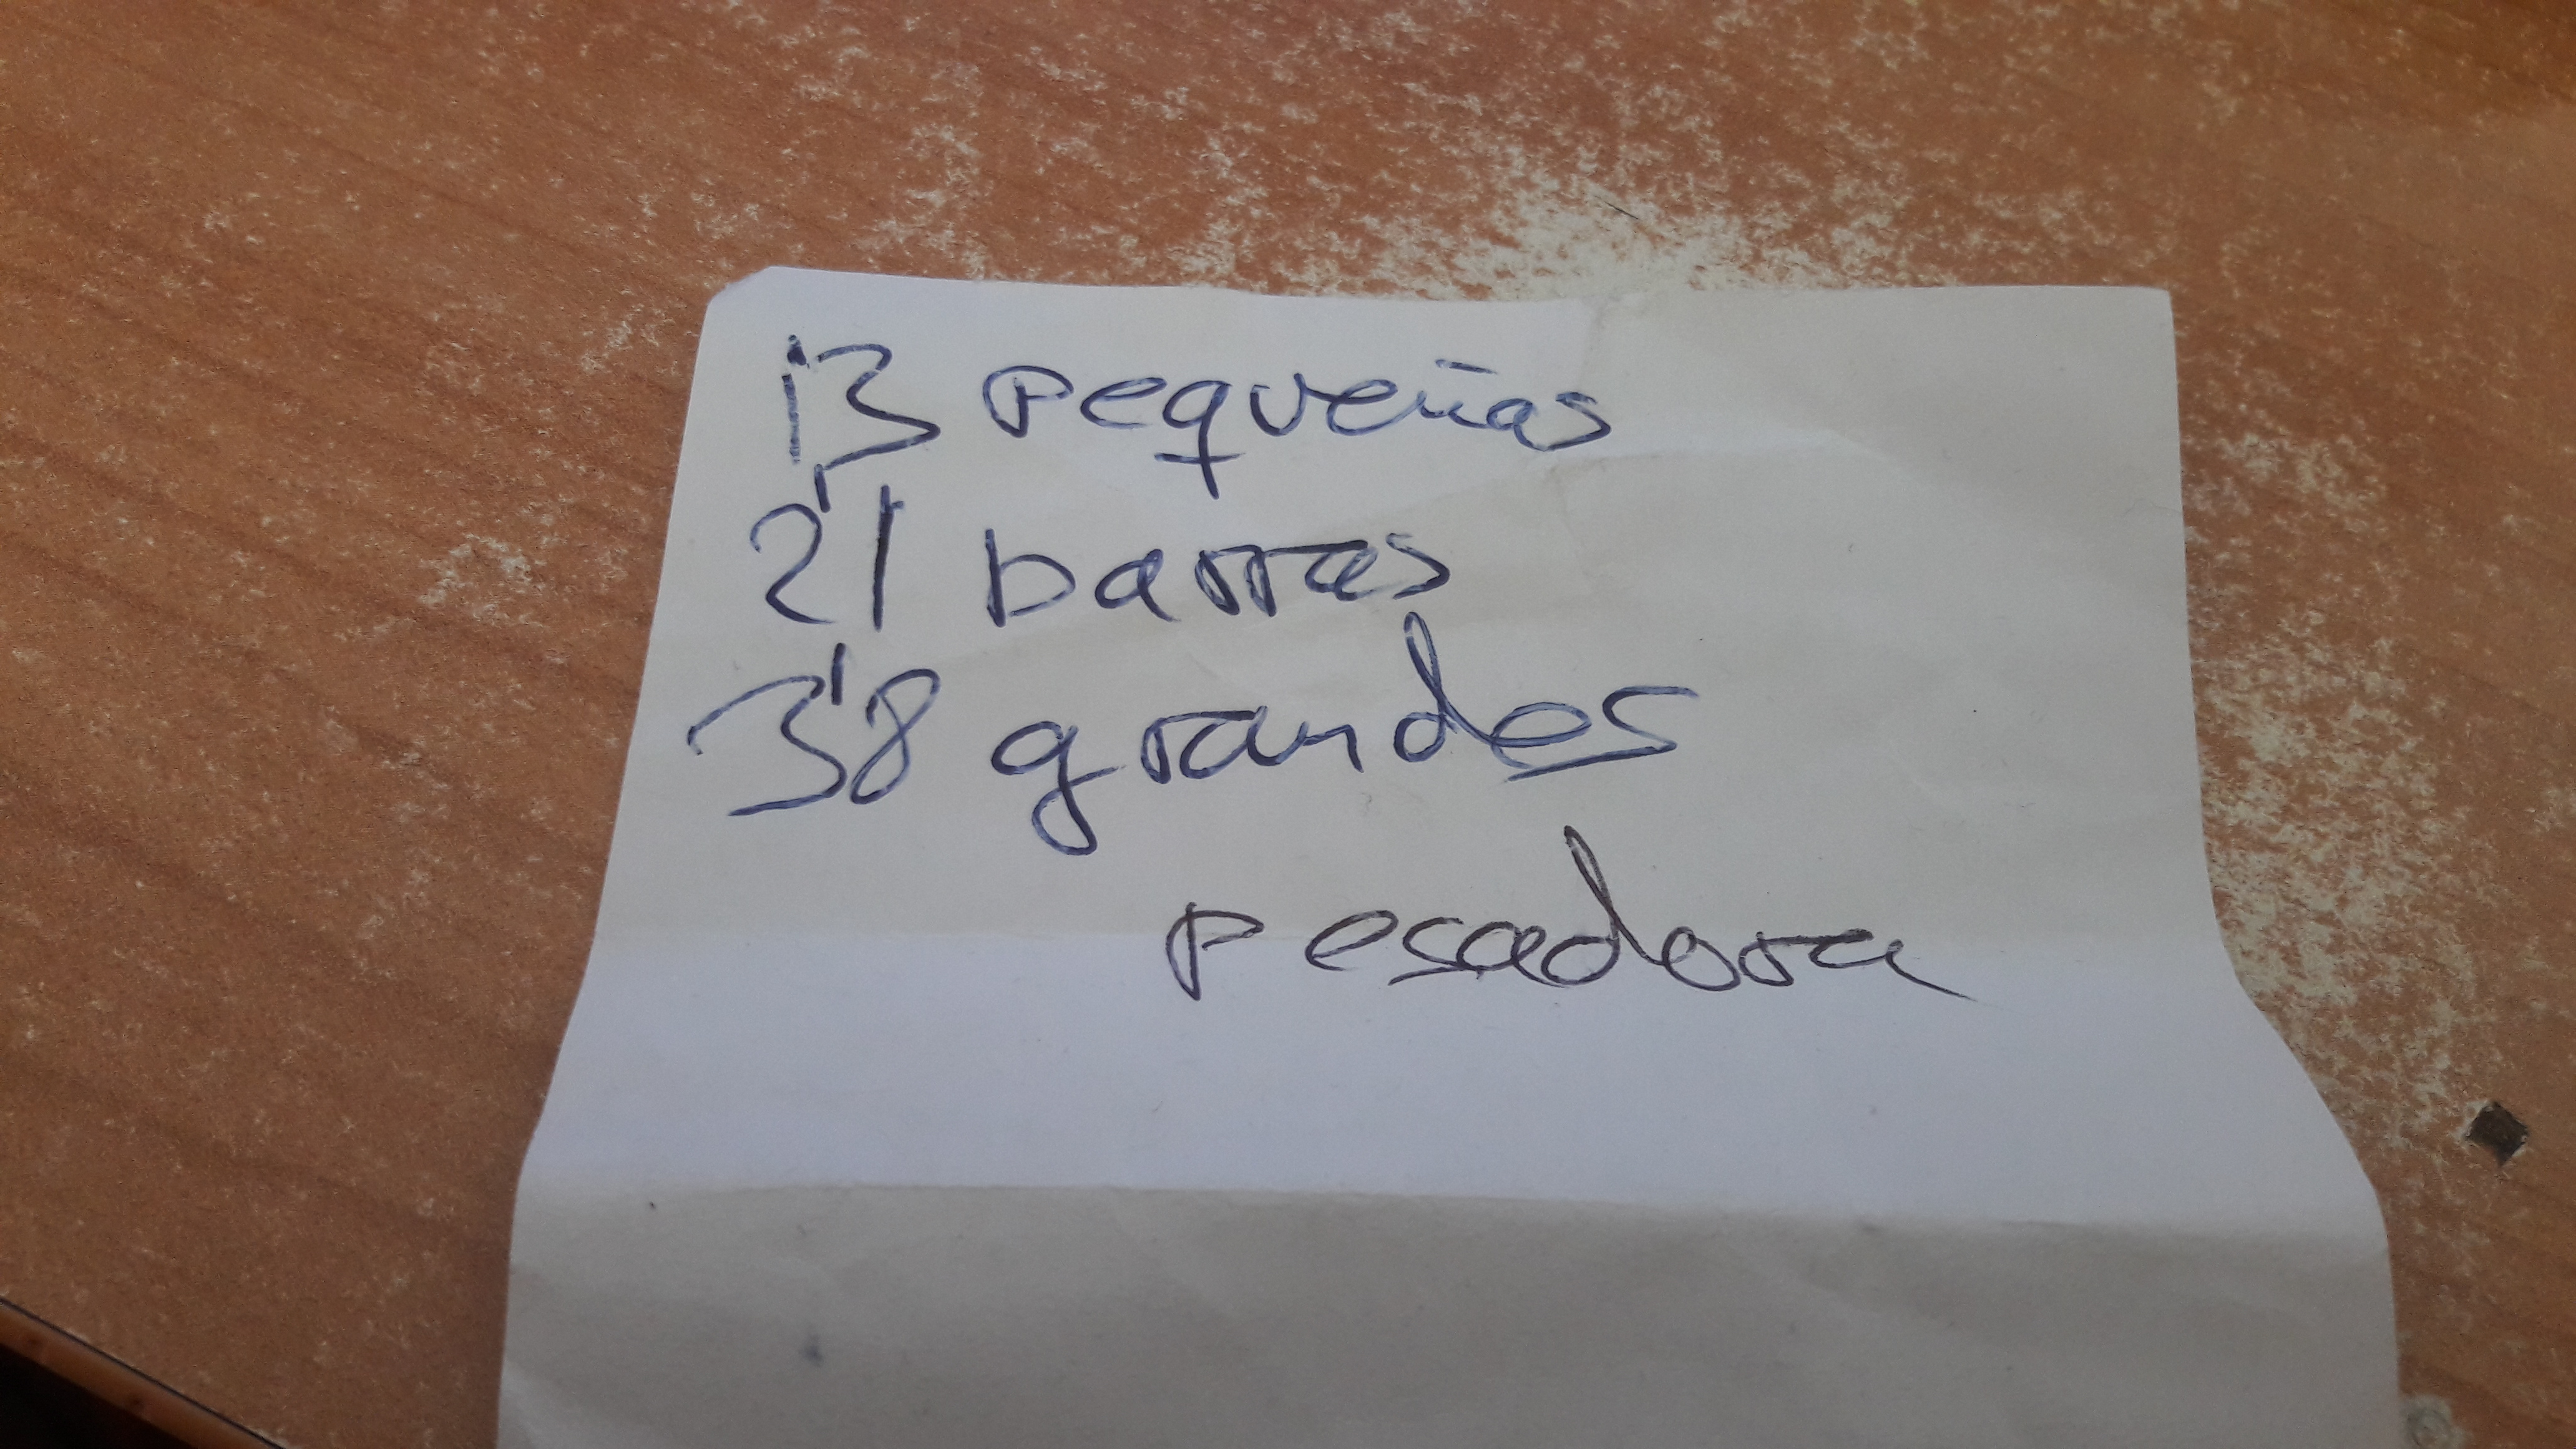 13 pequeñas
2'1 barras
3'8 grandes
pesadora